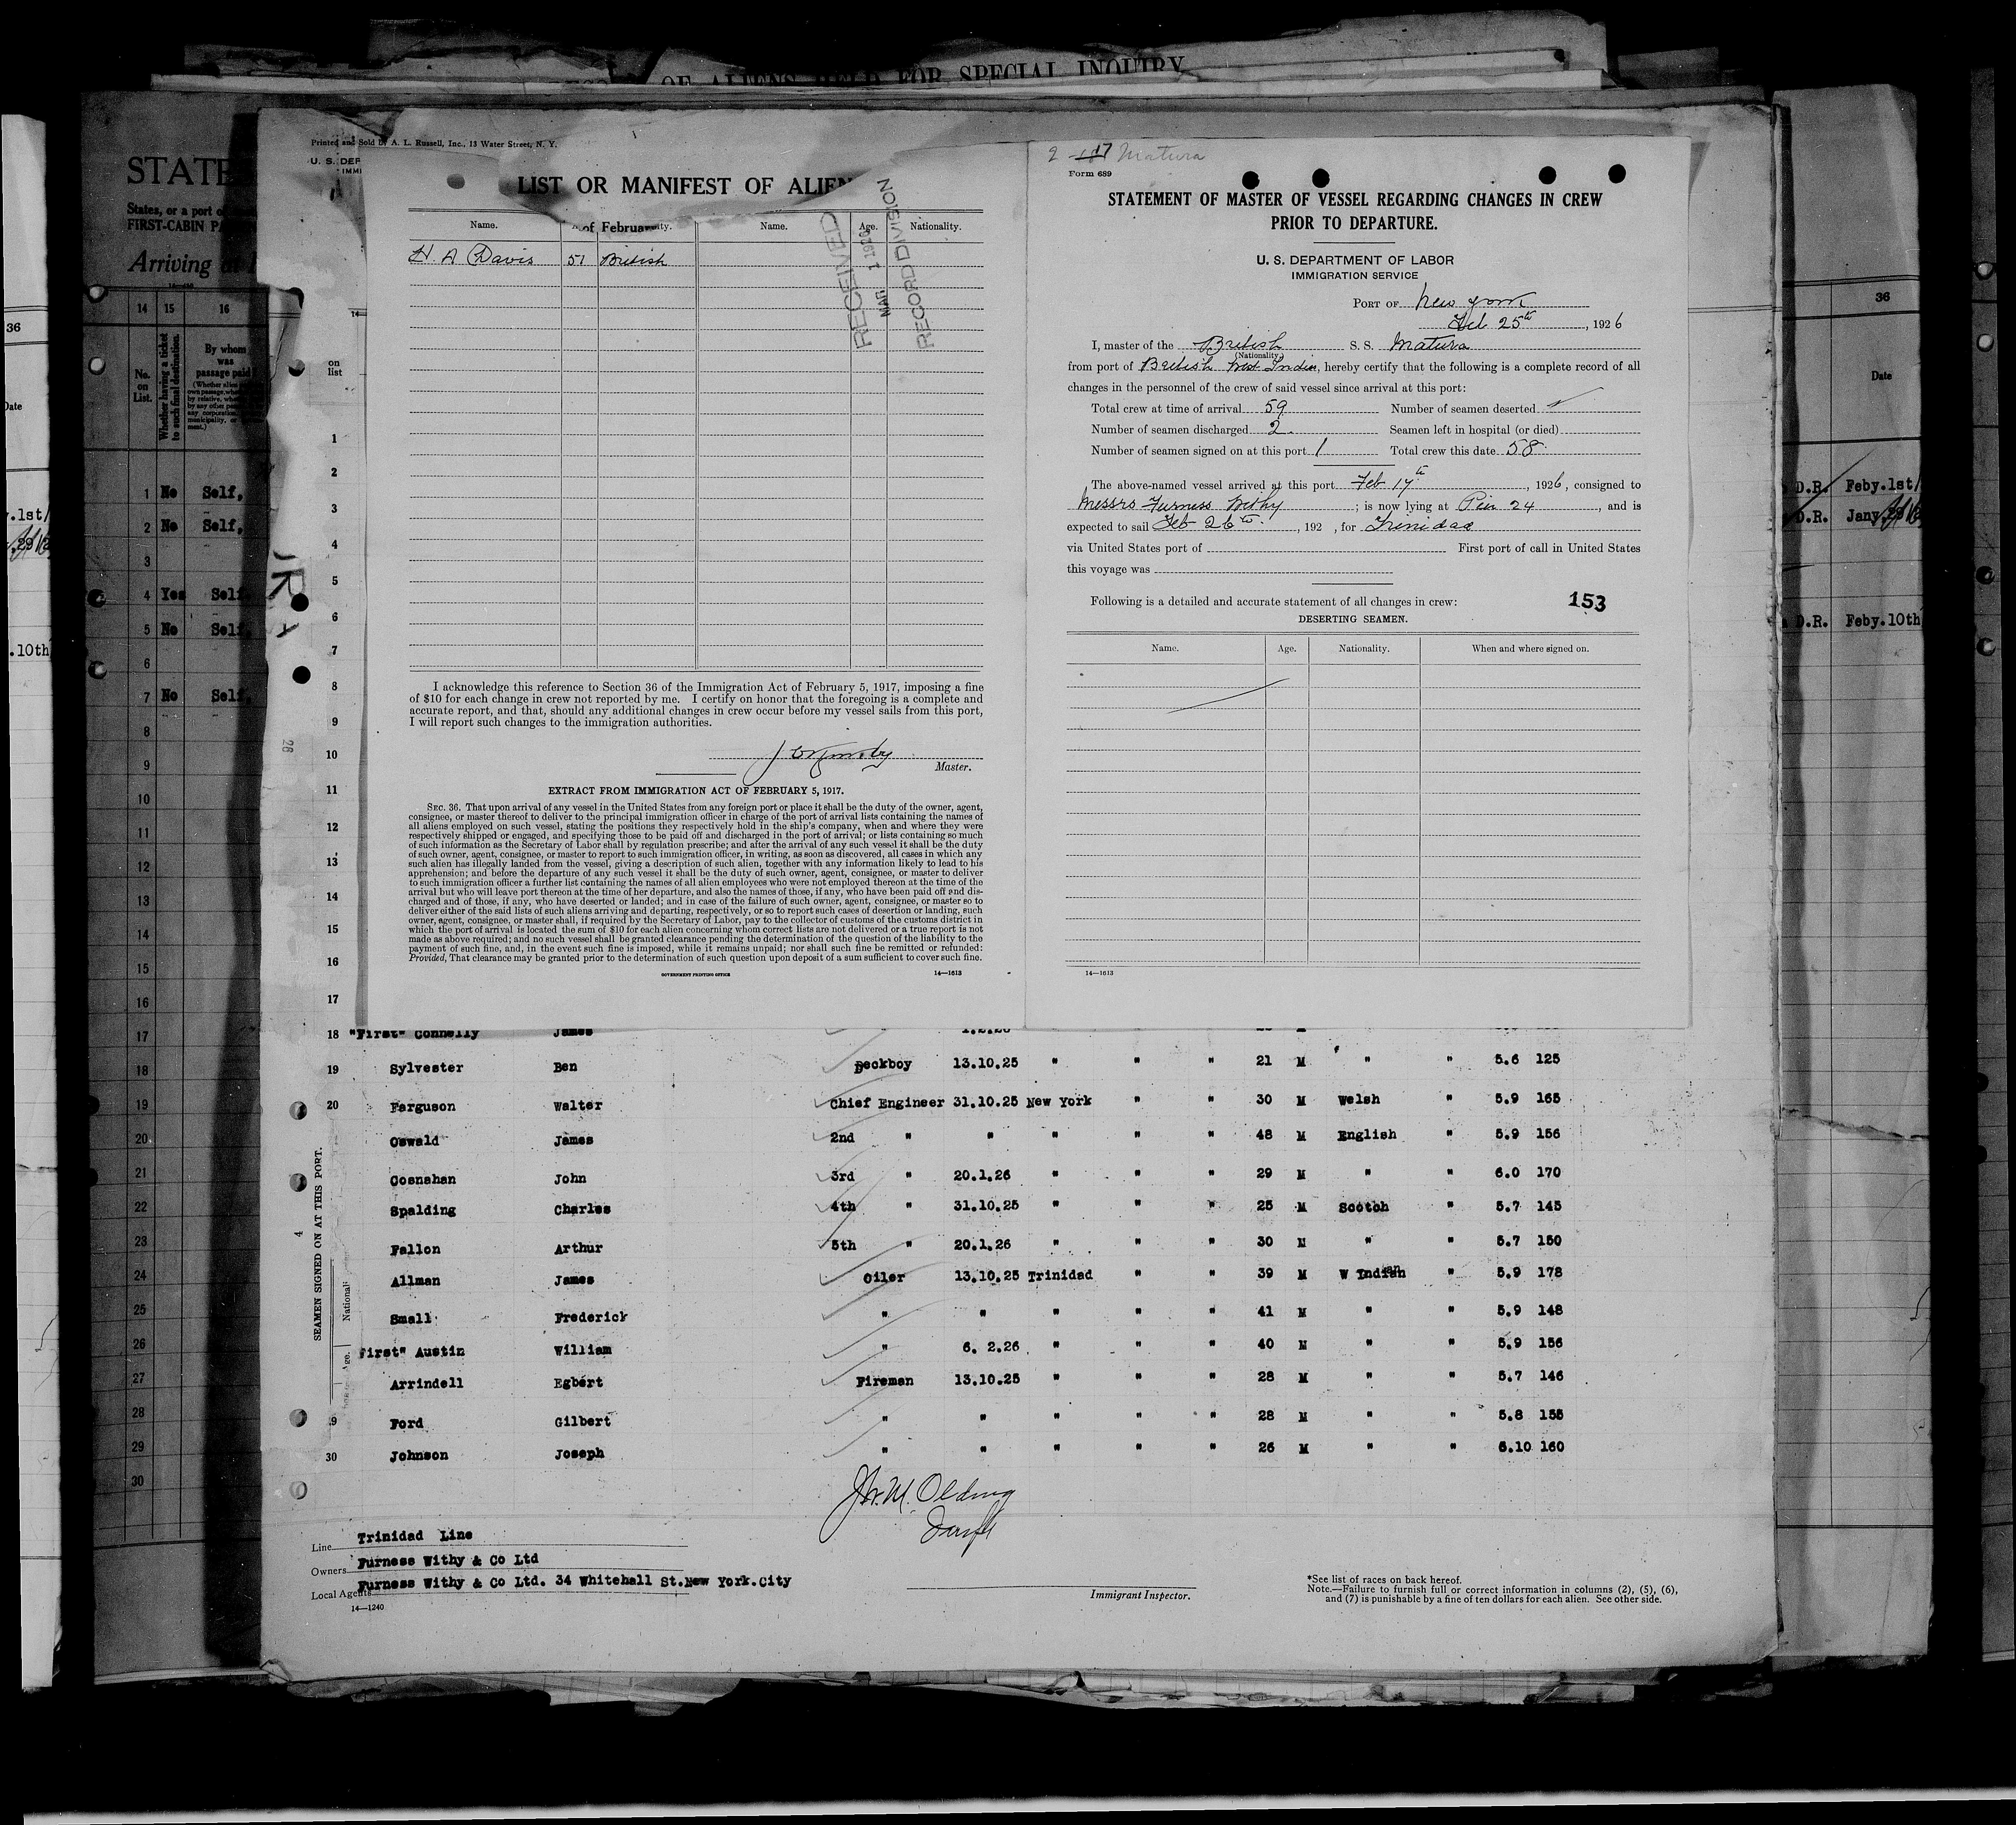 RECORD OF ALIENS HELD FOR SPECIAL INQUIRY
STATE
States, or a port of
FIRST-CABIN PA
Arriving at
14 15 16
No. on List.
Whether having a ticket to such final destination.
By whom was passage paid?
1 No Self,
2 No Self,
3
4 Yes Self
5 No Self
6
7 No Self,
8
9
10
11
12
13
14
15
16
17
18
19
20
21
22
23
24
25
26
27
28
29
30
36
Date
.1st/
.10th
Printed and Sold by A. L. Russell, Inc., 13 Water Street, N. Y.
U. S. DEP
IMMI
LIST OR MANIFEST OF ALIEN
of February
Name. Name. Age. Nationality.
RECEIVED
MAR 1 1926
RECORD DIVISION
H. A Davis 51 British
I acknowledge this reference to Section 36 of the Immigration Act of February 5, 1917, imposing a fine
of $10 for each change in crew not reported by me. I certify on honor that the foregoing is a complete and
accurate report, and that, should any additional changes in crew occur before my vessel sails from this port,
I will report such changes to the immigration authorities.
Master.
EXTRACT FROM IMMIGRATION ACT OF FEBRUARY 5, 1917.
SEC. 36. That upon arrival of any vessel in the United States from any foreign port or place it shall be the duty of the owner, agent,
consignee, or master thereof to deliver to the principal immigration officer in charge of the port of arrival lists containing the names of
all aliens employed on such vessel, stating the positions they respectively hold in the ship's company, when and where they were
respectively shipped or engaged, and specifying those to be paid off and discharged in the port of arrival; or lists containing so much
of such information as the Secretary of Labor shall by regulation prescribe; and after the arrival of any such vessel it shall be the duty
of such owner, agent, consignee, or master to report to such immigration officer, in writing, as soon as discovered, all cases in which any
such alien has illegally landed from the vessel, giving a description of such alien, together with any information likely to lead to his
apprehension; and before the departure of any such vessel it shall be the duty of such owner, agent, consignee, or master to deliver
to such immigration officer a further list containing the names of all alien employees who were not employed thereon at the time of the
arrival but who will leave port thereon at the time of her departure, and also the names of those, if any, who have been paid off and dis-
charged and of those, if any, who have deserted or landed; and in case of the failure of such owner, agent, consignee, or master so to
deliver either of the said lists of such aliens arriving and departing, respectively, or so to report such cases of desertion or landing, such
owner, agent, consignee, or master shall, if required by the Secretary of Labor, pay to the collector of customs of the customs district in
which the port of arrival is located the sum of $10 for each alien concerning whom correct lists are not delivered or a true report is not
made as above required; and no such vessel shall be granted clearance pending the determination of the question of the liability to the
payment of such fine, and, in the event such fine is imposed, while it remains unpaid; nor shall such fine be remitted or refunded:
Provided, That clearance may be granted prior to the determination of such question upon deposit of a sum sufficient to cover such fine.
GOVERNMENT PRINTING OFFICE 14—1613
2 17 Matura
Form 689
STATEMENT OF MASTER OF VESSEL REGARDING CHANGES IN CREW
PRIOR TO DEPARTURE.
U. S. DEPARTMENT OF LABOR
IMMIGRATION SERVICE
PORT OF New York
Feb 25th, 1926
I, master of the British S. S. Matura
(Nationality)
from port of British West Indies, hereby certify that the following is a complete record of all
changes in the personnel of the crew of said vessel since arrival at this port:
Total crew at time of arrival 59 Number of seamen deserted
Number of seamen discharged 2 Seamen left in hospital (or died)
Number of seamen signed on at this port 1 Total crew this date 58
The above-named vessel arrived at this port Feb 17th, 1926, consigned to
Messrs Furness Withy; is now lying at Pier 24, and is
expected to sail Feb 26th, 192 , for Trinidad
via United States port of First port of call in United States
this voyage was
Following is a detailed and accurate statement of all changes in crew: 153
DESERTING SEAMEN.
Name. Age. Nationality. When and where signed on.
14—1613
36
Date
D.R. Feby.1st/
D.R. Jany.29
D.R. Feby.10th
on list
1
2
3
4
5
6
7
8
9
10
11
12
13
14
15
16
17
18 "First" Connelly James
19 Sylvester Ben Deckboy 13.10.25 " " " 21 M " " 5.6 125
20 Ferguson Walter Chief Engineer 31.10.25 New York " " 30 M Welsh " 5.9 165
Oswald James 2nd " " " " " 48 M English " 5.9 156
Cosnahan John 3rd " 20.1.26 " " " 29 M " " 6.0 170
Spalding Charles 4th " 31.10.25 " " " 25 M Scotch " 5.7 145
Fallon Arthur 5th " 20.1.26 " " " 30 M " " 5.7 150
Allman James Oiler 13.10.25 Trinidad " " 39 M W Indian " 5.9 178
Small Frederick " " " " " 41 M " " 5.9 148
First" Austin William " 6. 2.26 " " " 40 M " " 5.9 156
Arrindell Egbert Fireman 13.10.25 " " " 28 M " " 5.7 146
Ford Gilbert " " " " " 28 M " " 5.8 155
30 Johnson Joseph " " " " " 26 M " " 5.10 160
SEAMEN SIGNED ON AT THIS PORT.
4
Line Trinidad Line
Owners Furness Withy & Co Ltd
Local Agents Furness Withy & Co Ltd. 34 Whitehall St.New York.City
14—1240
Immigrant Inspector.
*See list of races on back hereof.
Note.—Failure to furnish full or correct information in columns (2), (5), (6),
and (7) is punishable by a fine of ten dollars for each alien. See other side.